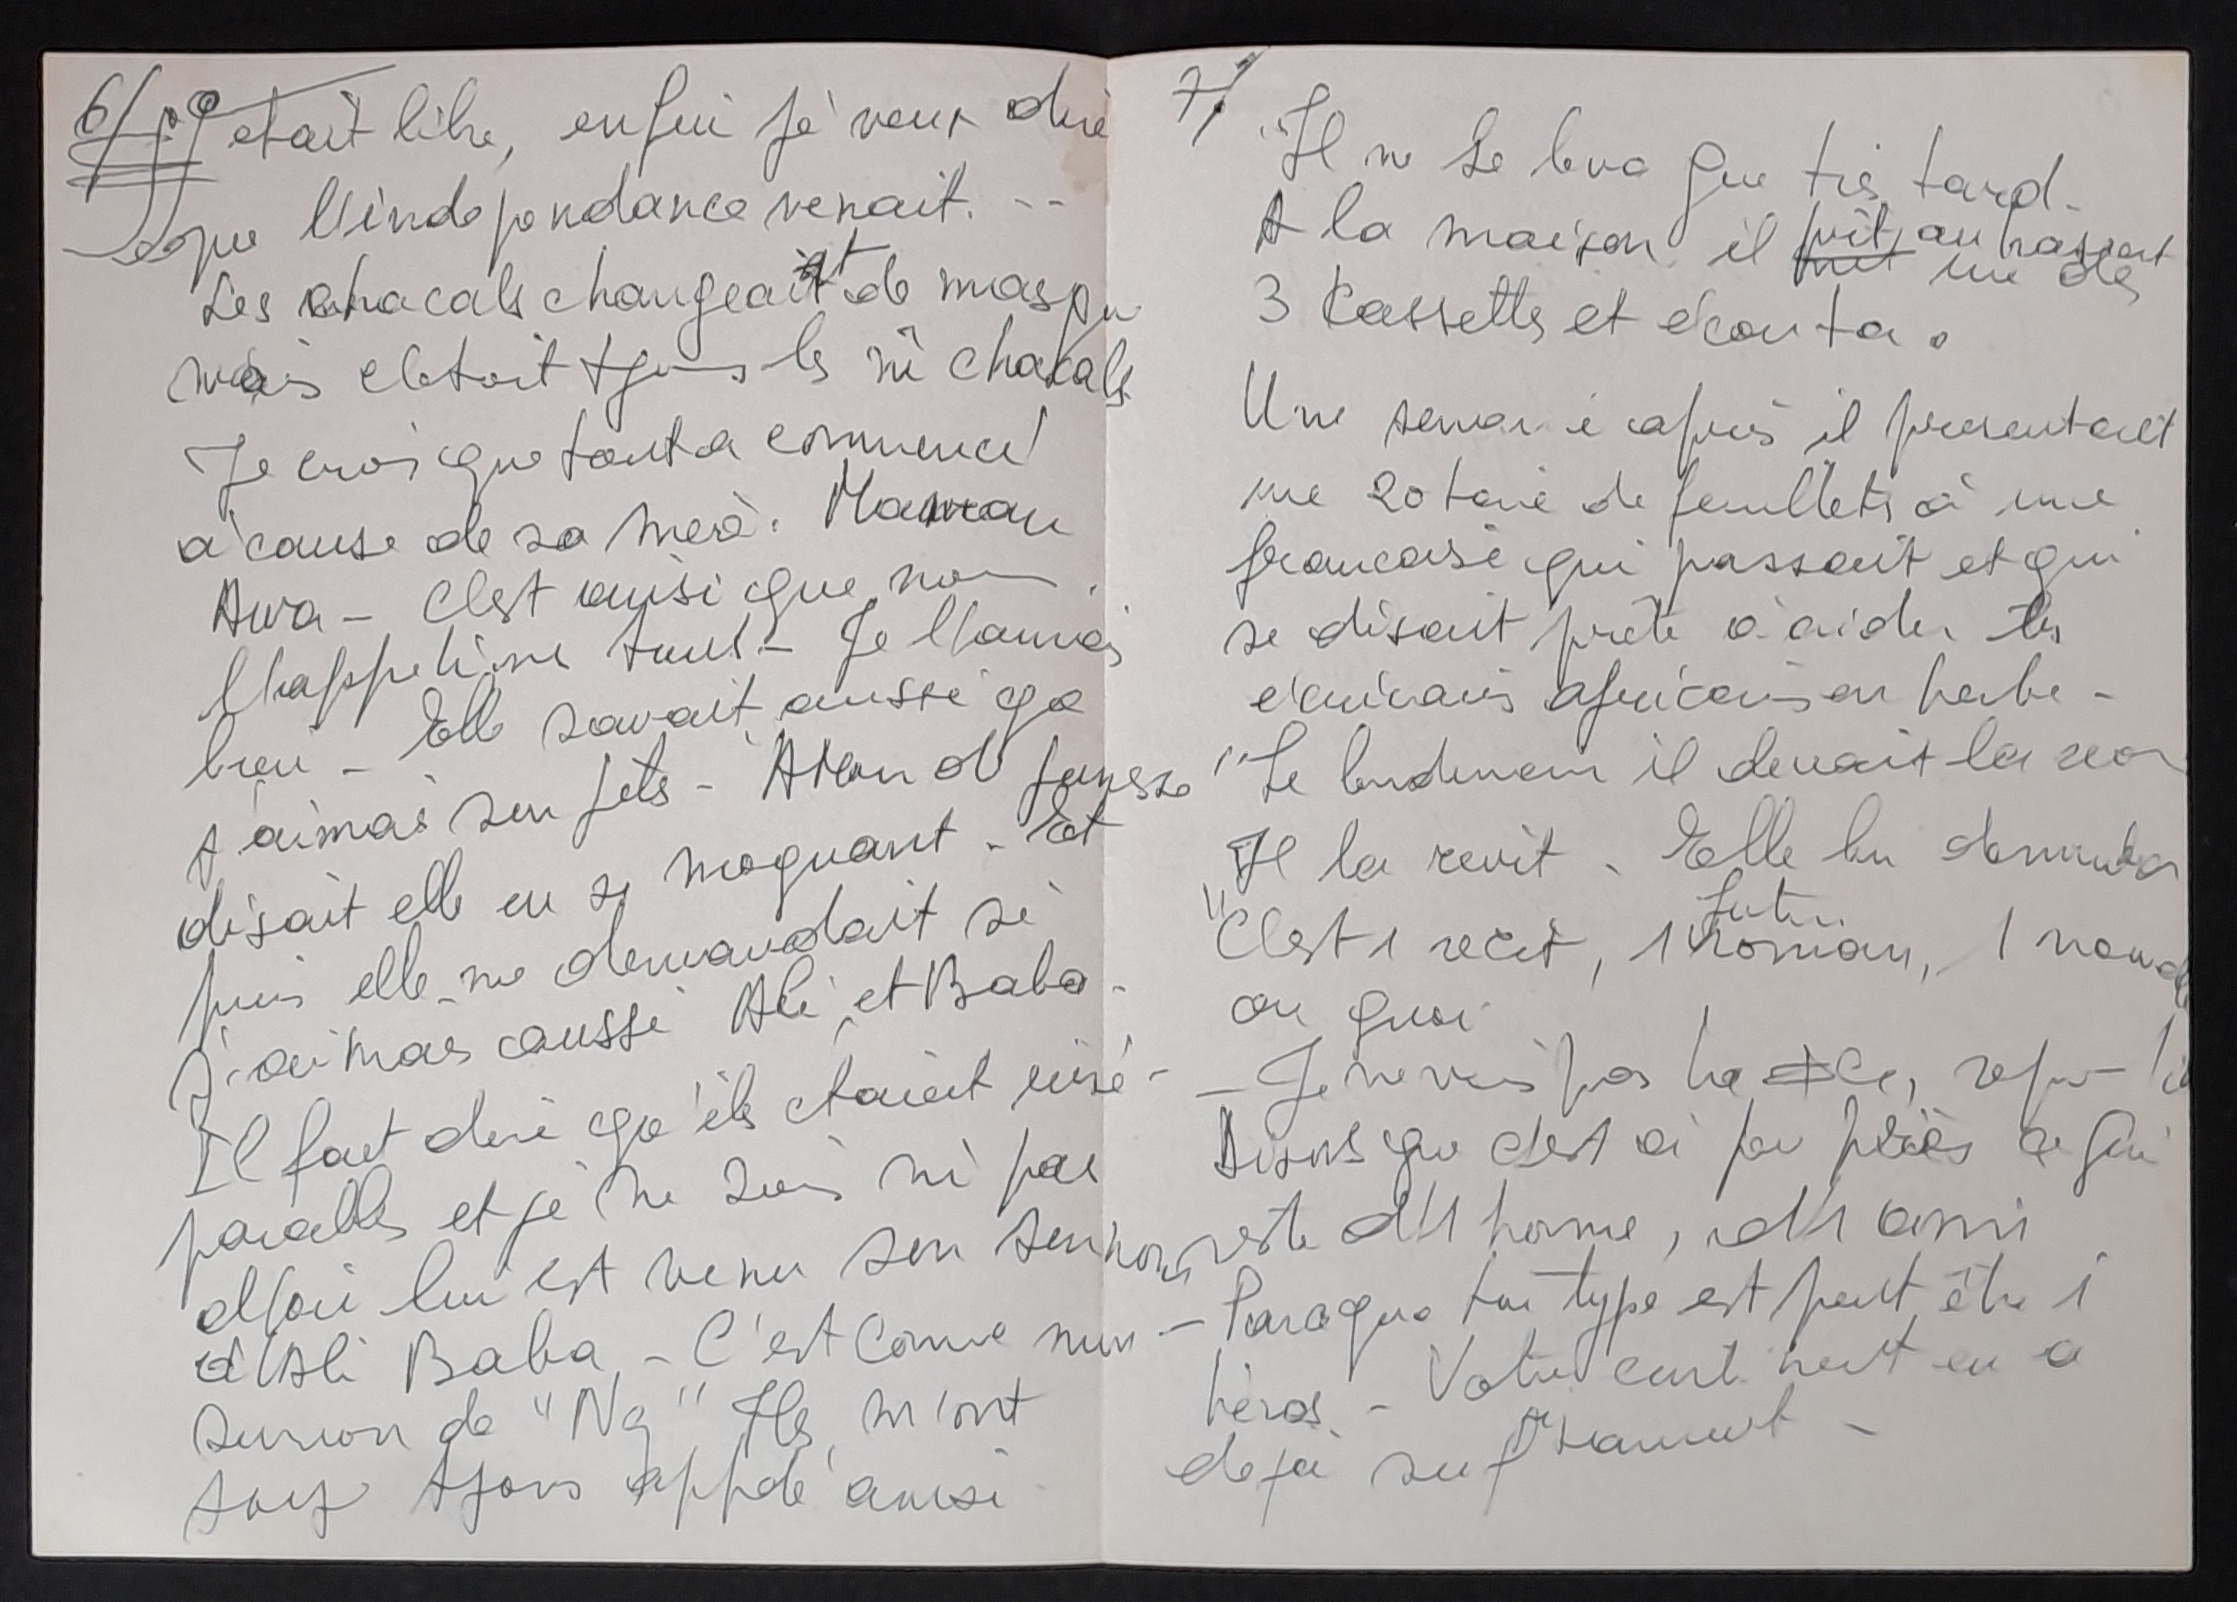 6/ était libre, enfin je veux dire
que l'independance venait. --
Les chacals changeait de masque
mais c'etait tjours les m̂ chacals
Je crois que tout a commencé
a cause de sa mere. Maman
Awa - C'est ainsi que nous
l'appelions tous - Je l'aimais
bien - Elle savait aussi que
j'aimais son fils - Amour de jeunesse
disait elle en se moquant - Et
puis elle me demandait si
j'aimais aussi Ali et Baba -
Il faut dire qu'ils étaient insé-
parables et je ne sais m̂ pas
d'où lui est venu son surnom
d'Ali Baba - C'est comme mon
surnom de "Na" Ils m'ont
tous tjours appelé ainsi
7/ "Il ne se leva que très tard -
A la maison il prit, au hasard
une des
3 Kassettes et écouta.
Une semaine après il presentait
une 20taine de feuillets à une
française qui passait et qui
se disait prête à aider les
écrivains africains en herbe -
"Le lendemain il devait la revoir
Il la revit - Elle lui demanda
"C'est 1 recit, 1 futur roman, 1 nouvelle
ou quoi
- Je ne sais pas
Disons que c'est à peu près ce qui
reste d'1 homme, d'1 ami
- Parce que ton type est peut être 1
héros - Votre continent en a
deja suffisament -